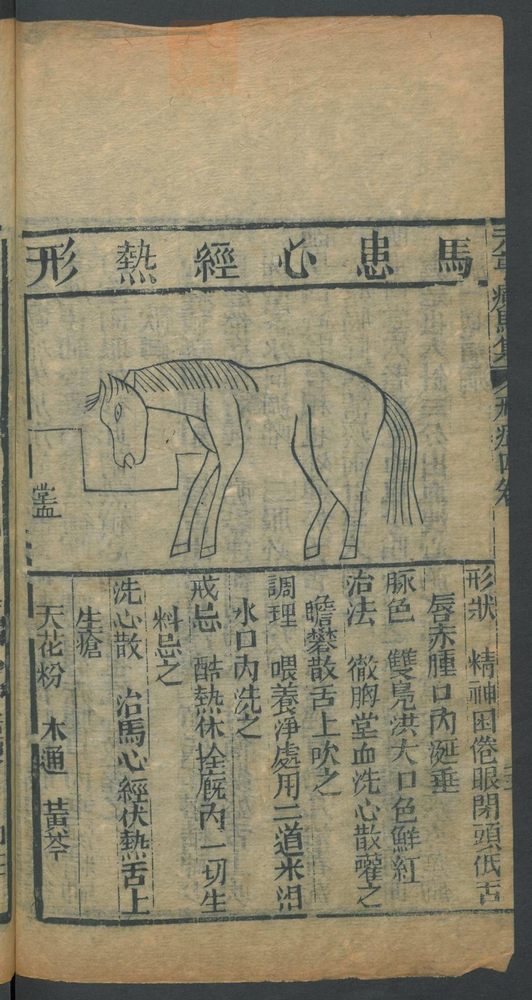 療馬集
馬患心經熱形
形狀 精神困倦眼閉頭低舌
唇赤腫口內涎垂
脉色 雙鳧洪大口色鮮紅
治法 徹胸堂血洗心散嚾之
瞻礬散舌上吹之
調理 喂養淨處用二道米泔
水口內洗之
戒忌 酷熱休拴廐內一切生
料忌之
洗心散 治馬心經伏熱舌上
生瘡
天花粉 木通 黃芩